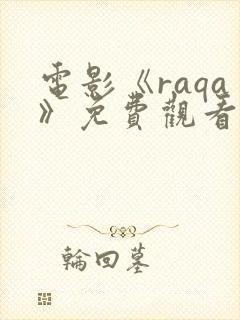 電影《raqa
》免費觀看
輪回墓